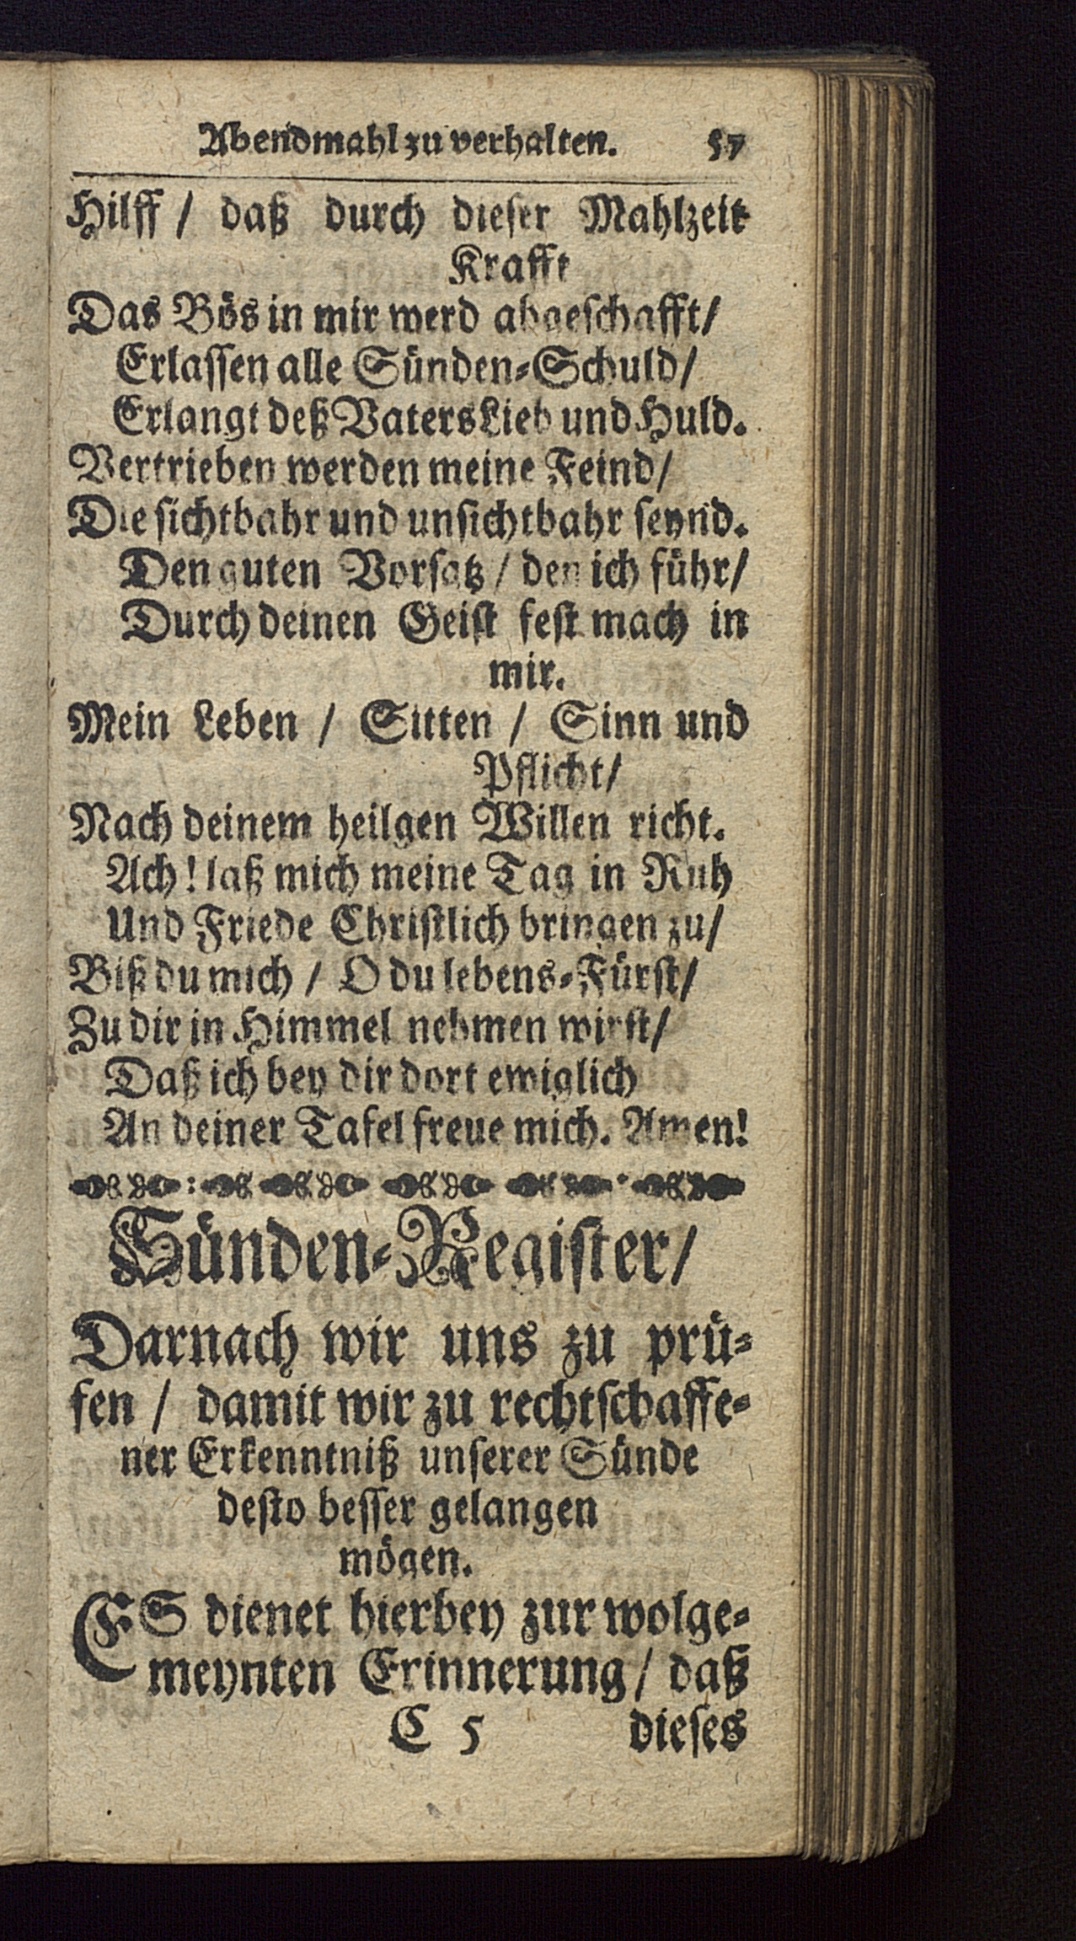 Abendmahl zu verhalten. 57
Hilff / daß durch dieser Mahlzeit
Krafft
Das Bös in mir werd abgeschafft/
Erlassen alle Sünden-Schuld/
Erlangt deß Vaters Lieb und Huld.
Vertrieben werden meine Feind/
Die sichtbahr und unsichtbahr seynd.
Den guten Vorsatz / den ich führ/
Durch deinen Geist fest mach in
mir.
Mein Leben / Sitten / Sinn und
Pflicht/
Nach deinem heilgen Willen richt.
Ach! laß mich meine Tag in Ruh
Und Friede Christlich bringen zu/
Biß du mich / O du lebens-Fürst/
Zu dir in Himmel nehmen wirst/
Daß ich bey dir dort ewiglich
An deiner Tafel freue mich. Amen!
Sünden-Register/
Darnach wir uns zu prü-
fen / damit wir zu rechtschaffe-
ner Erkenntniß unserer Sünde
desto besser gelangen
mögen.
ES dienet hierbey zur wolge-
meynten Erinnerung / daß
C 5 dieses